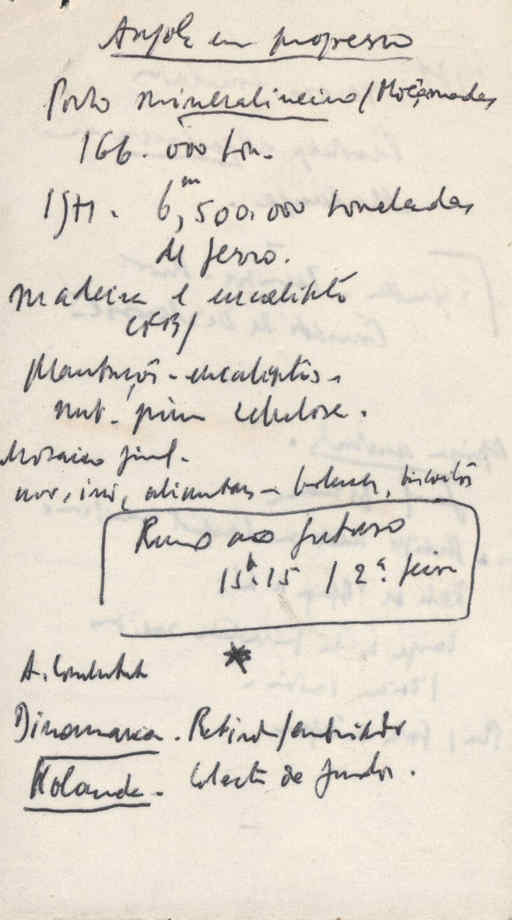 Angola em progresso
Porto mineralineiro/Moçamedes
166.000 ton.
1971. 6,500.000 toneladas
de ferro.
madeira e eucalipto
CFB/
Plantações - eucaliptos -
mat. prima celulose.
Mosaico final.
alimentares - bolachas, biscoitos
Rumo ao futuro
15h.15 / 2ª. feira
*
A.
Dinamarca.
Holanda. Colecta de fundos.